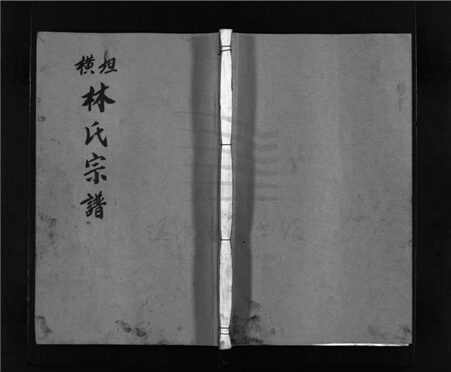 坦橫
林氏宗譜